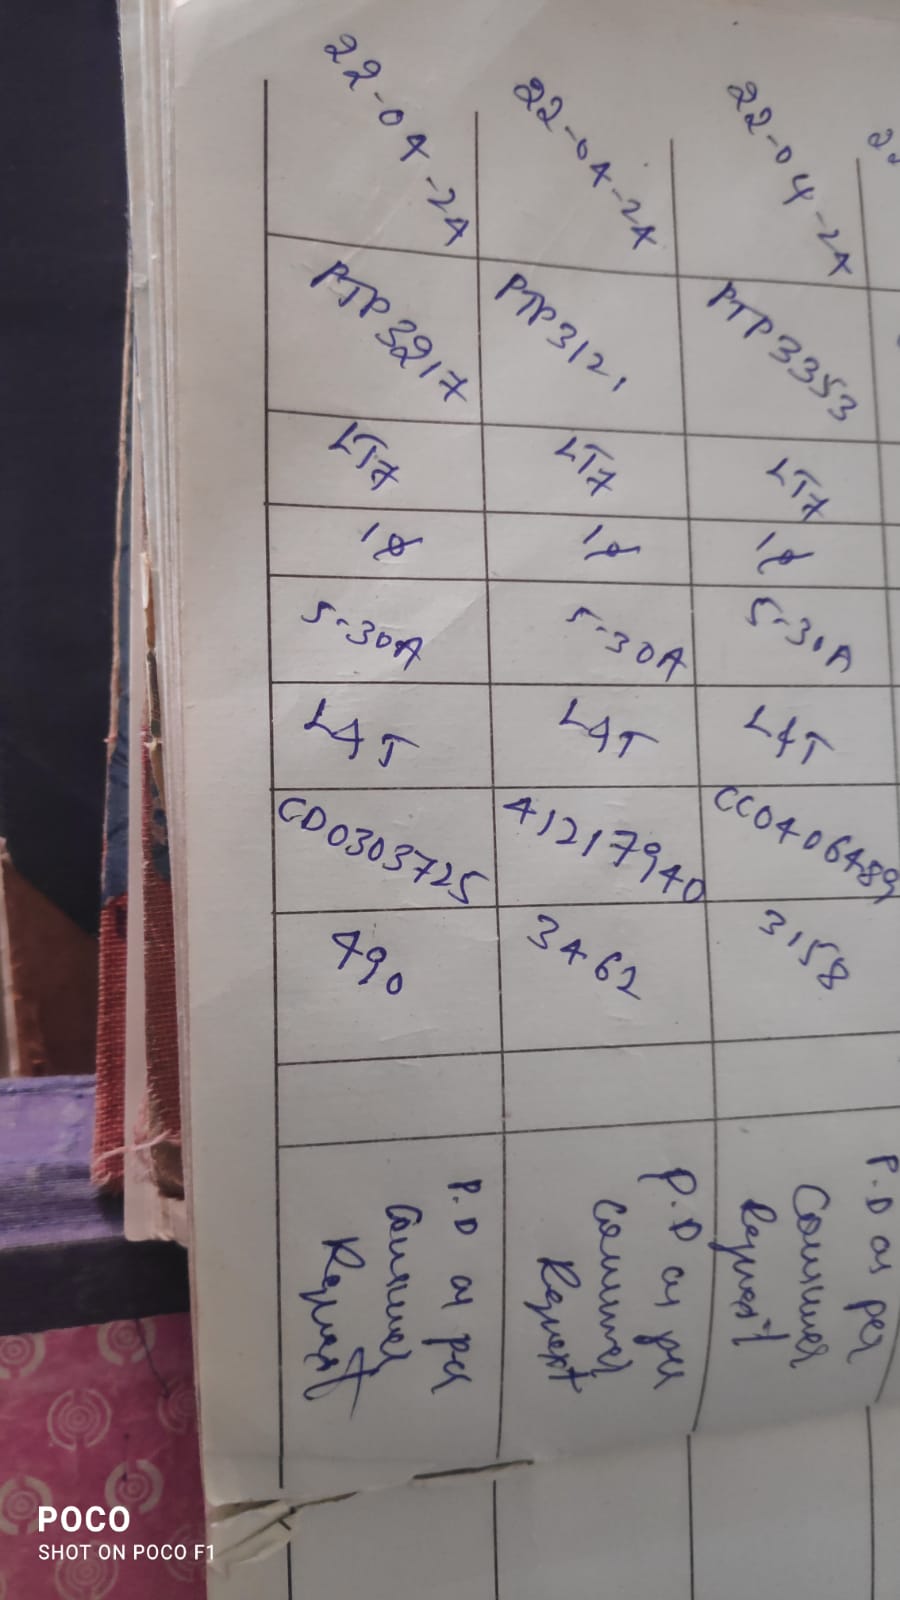 22-04-24
PTP3353
LT7
1ϕ
5-30A
L&T
CC0406489
3158
P.D as per
Consumer
Request
22-04-24
PTP3121
LT7
1ϕ
5-30A
L&T
41217940
3462
P.D as per
Consumer
Request
22-04-24
PTP3217
LT7
1ϕ
5-30A
L&T
CD0303725
490
P.D as per
Consumer
Request
POCO
SHOT ON POCO F1